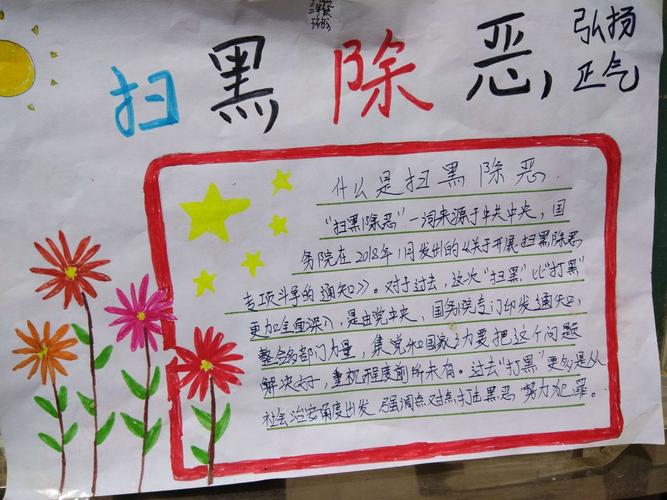 扫黑除恶
弘扬
正气
什么是扫黑除恶
"扫黑除恶"一词来源于中共中央,国
务院在2018年1月发出的《关于开展扫黑除恶
专项斗争的通知》。对于过去,这次"扫黑"比"打黑"
更加全面深入,是由党中央,国务院专门印发通知,
整合各部门力量,集党和国家之力要把这个问题
解决好,重视程度前所未有。过去"打黑"更多是从
社会治安角度出发,强调点对点打击黑恶势力犯罪。